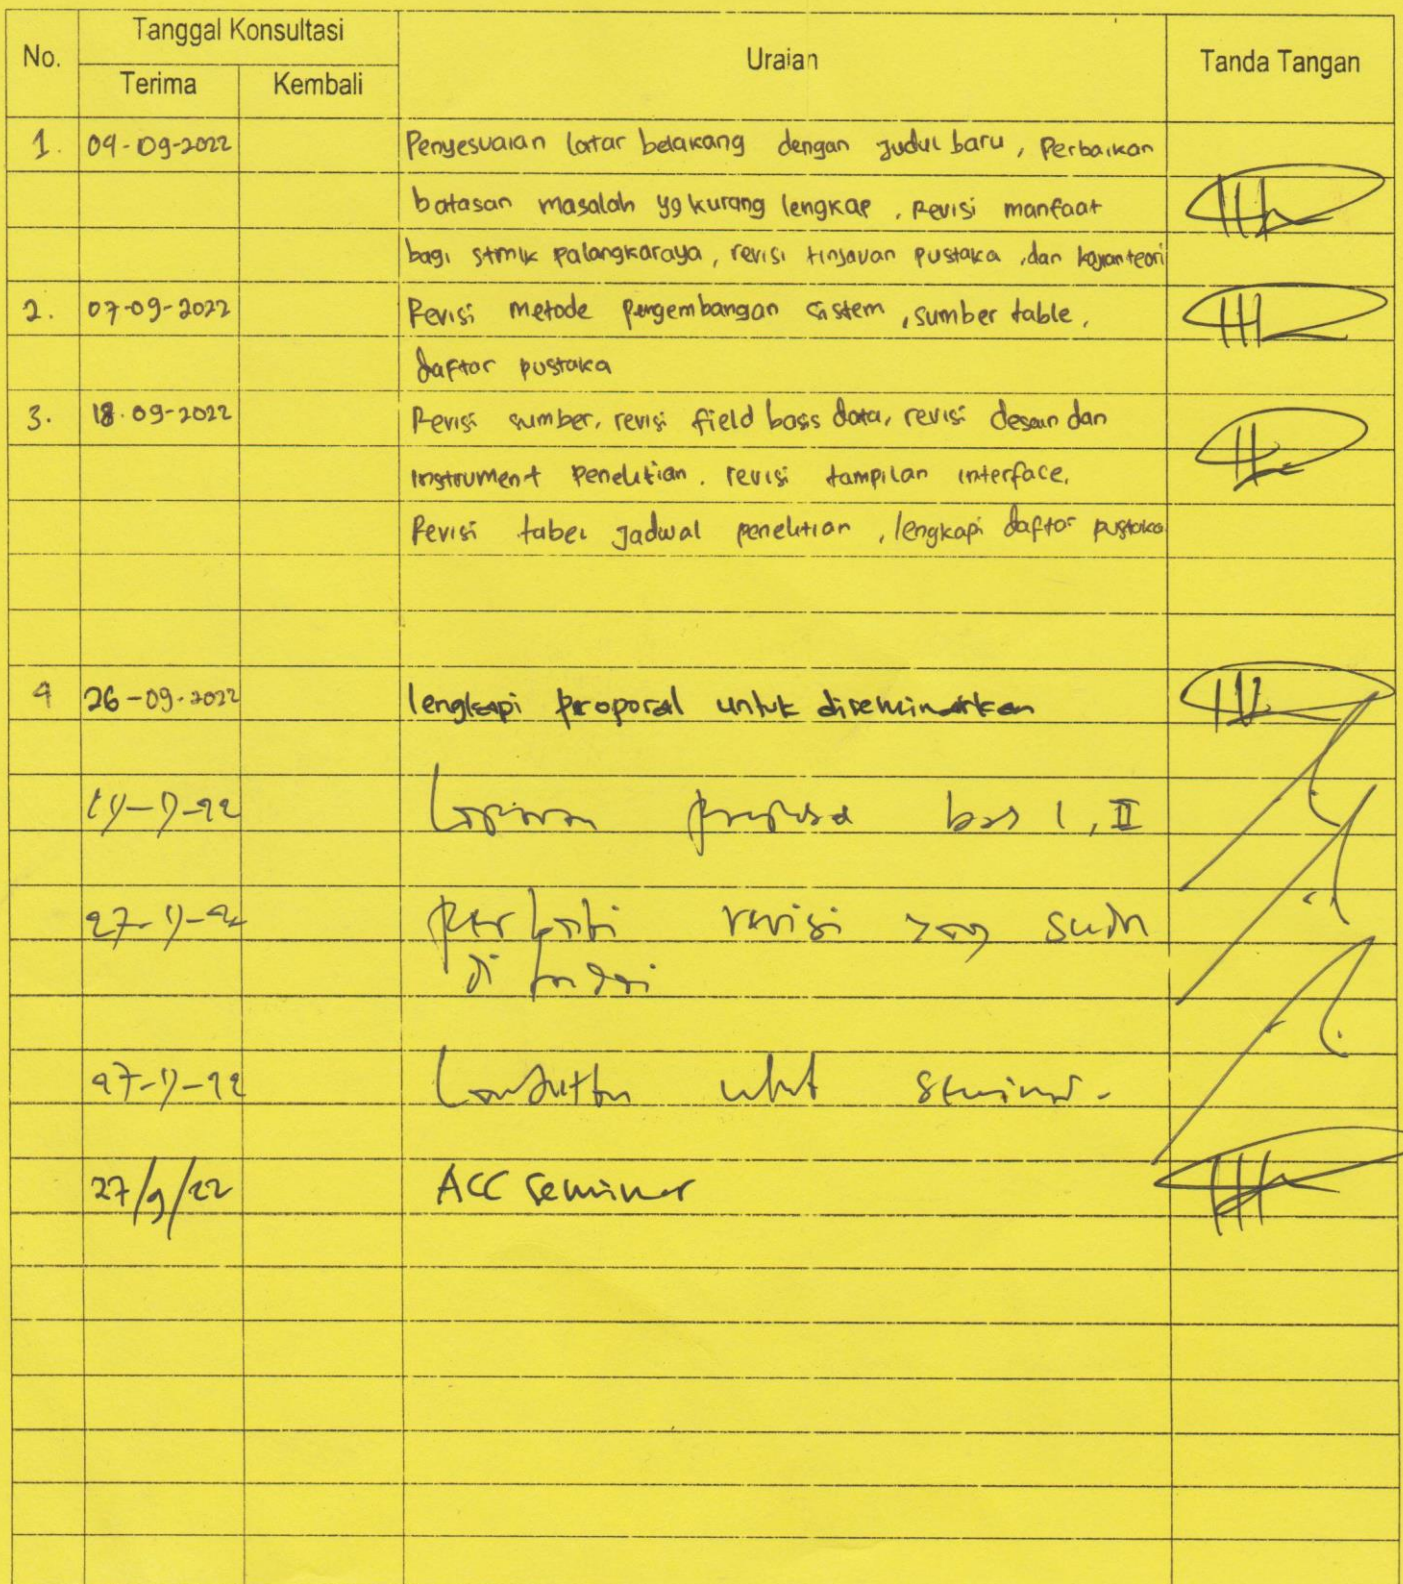 No. Tanggal Konsultasi Uraian Tanda Tangan
Terima Kembali
1. 09-09-2022 Penyesuaian latar belakang dengan judul baru, Perbaikan
batasan masalah yg kurang lengkap, Revisi manfaat
bagi stmik palangkaraya, revisi tinjauan pustaka, dan kajian teori
2. 07-09-2022 Revisi metode pengembangan sistem, sumber table,
daftar pustaka
3. 18-09-2022 Revisi sumber, revisi field basis data, revisi desain dan
instrument penelitian, revisi tampilan interface,
Revisi tabel jadwal penelitian, lengkapi daftar pustaka
4 26-09-2022 lengkapi proposal untuk diseminarkan
bab I, II
revisi
27/9/22 ACC seminar